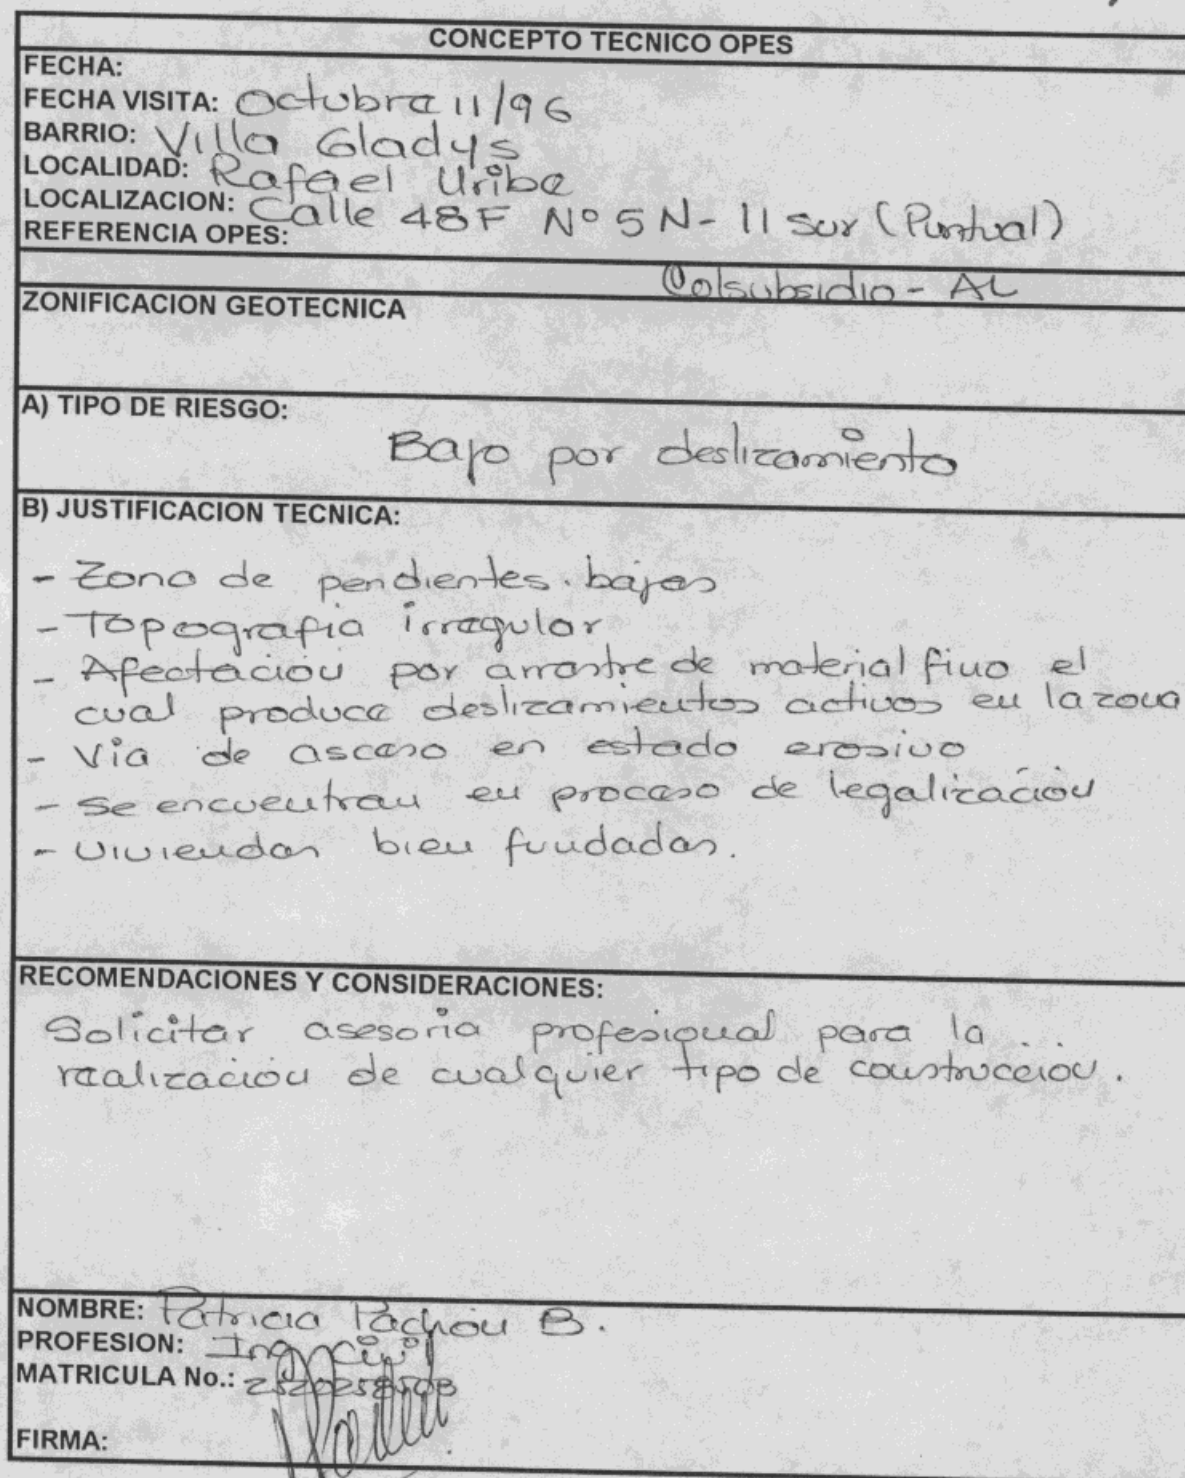 CONCEPTO TECNICO OPES
FECHA:
FECHA VISITA: Octubre 11/96
BARRIO: Villa Gladys
LOCALIDAD: Rafael Uribe
LOCALIZACION: Calle 48F Nº 5N-11 Sur (Puntual)
REFERENCIA OPES:
Colsubsidio - AL
ZONIFICACION GEOTECNICA
A) TIPO DE RIESGO:
Bajo por deslizamiento
B) JUSTIFICACION TECNICA:
- Zona de pendientes bajas
- Topografia irregular
- Afectación por arrastre de material fino el
cual produce deslizamientos activos en la zona
- Via de acceso en estado erosivo
- Se encuentran en proceso de legalización
- Viviendas bien fundadas.
RECOMENDACIONES Y CONSIDERACIONES:
Solicitar asesoria profesional para la
realización de cualquier tipo de construcción.
NOMBRE: Patricia Pachón B.
PROFESION: Ing Civil
MATRICULA No.:
FIRMA: